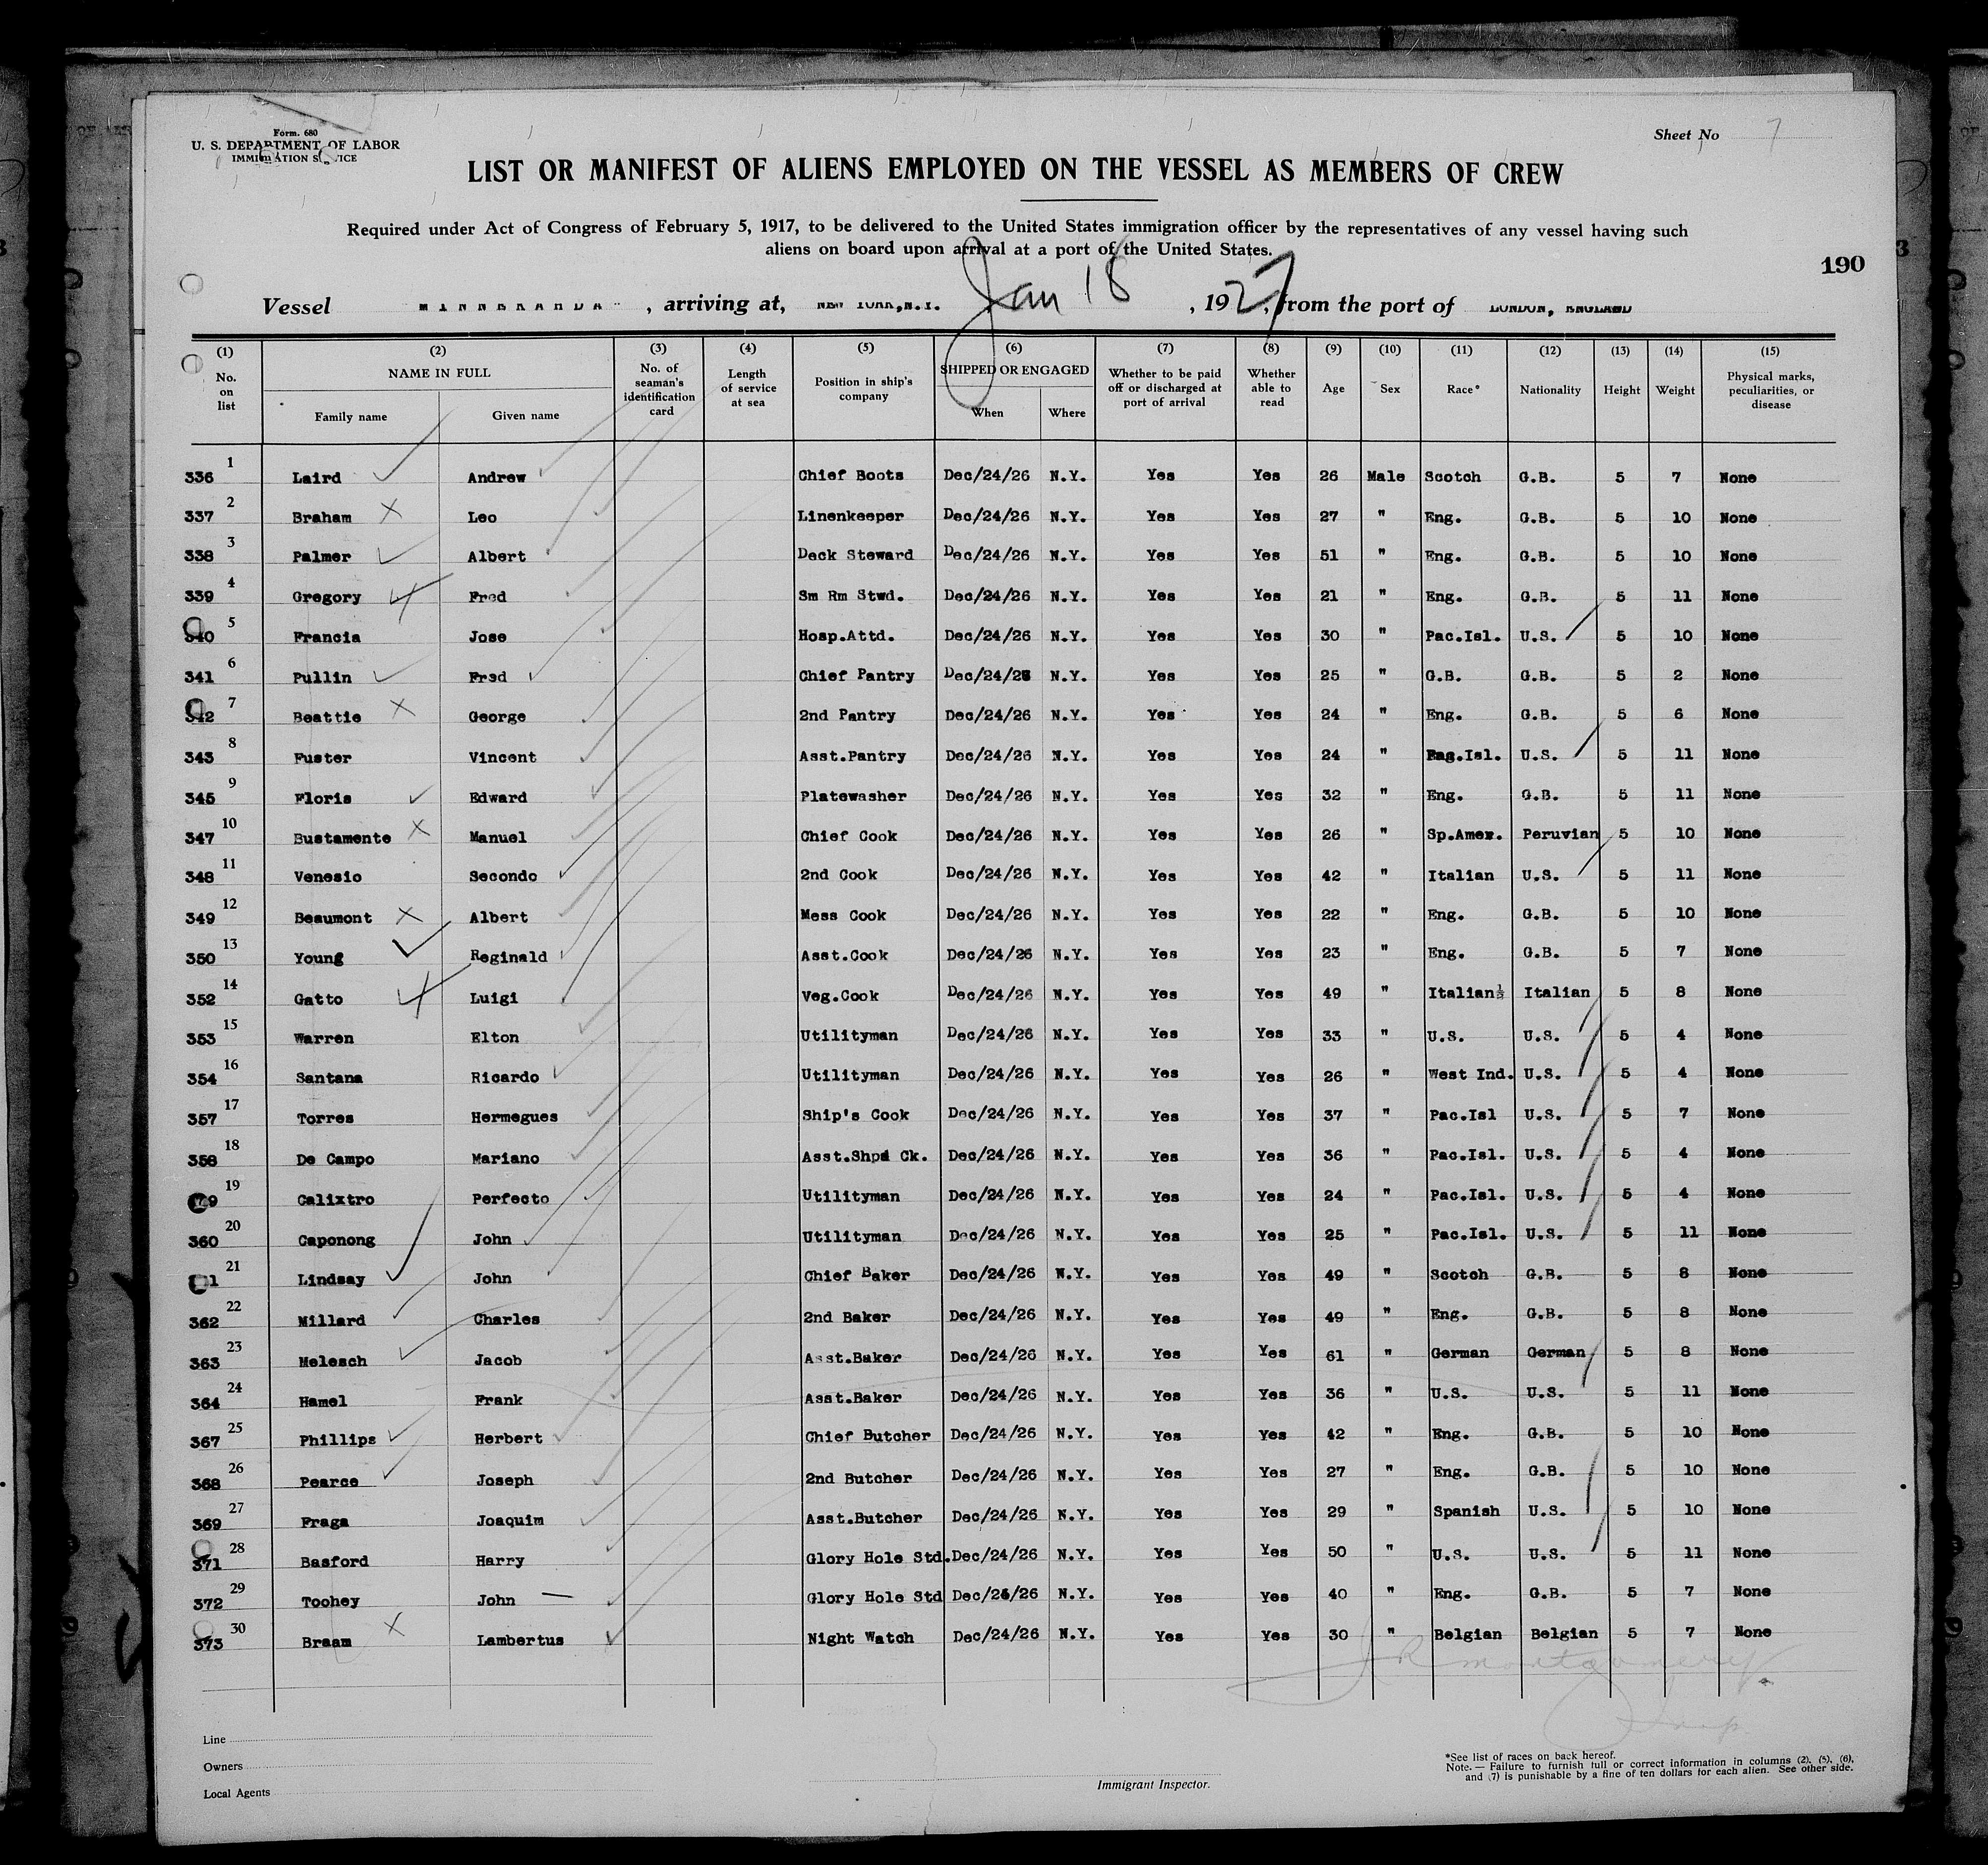 Form. 680
U. S. DEPARTMENT OF LABOR
IMMIGRATION SERVICE
Sheet No 7
LIST OR MANIFEST OF ALIENS EMPLOYED ON THE VESSEL AS MEMBERS OF CREW
Required under Act of Congress of February 5, 1917, to be delivered to the United States immigration officer by the representatives of any vessel having such
aliens on board upon arrival at a port of the United States.
190
Vessel , arriving at, NEW YORK,N.Y. Jan 18, 1927, from the port of LONDON, ENGLAND
(1) (2) (3) (4) (5) (6) (7) (8) (9) (10) (11) (12) (13) (14) (15)
No. on list NAME IN FULL Family name Given name No. of seaman's identification card Length of service at sea Position in ship's company SHIPPED OR ENGAGED When Where Whether to be paid off or discharged at port of arrival Whether able to read Age Sex Race* Nationality Height Weight Physical marks, peculiarities, or disease
336 1 Laird Andrew Chief Boots Dec/24/26 N.Y. Yes Yes 26 Male Scotch G.B. 5 7 None
337 2 Braham Leo Linenkeeper Dec/24/26 N.Y. Yes Yes 27 " Eng. G.B. 5 10 None
338 3 Palmer Albert Deck Steward Dec/24/26 N.Y. Yes Yes 51 " Eng. G.B. 5 10 None
339 4 Gregory Fred Sm Rm Stwd. Dec/24/26 N.Y. Yes Yes 21 " Eng. G.B. 5 11 None
340 5 Francia Jose Hosp.Attd. Dec/24/26 N.Y. Yes Yes 30 " Pac.Isl. U.S. 5 10 None
341 6 Pullin Fred Chief Pantry Dec/24/26 N.Y. Yes Yes 25 " G.B. G.B. 5 2 None
342 7 Beattie George 2nd Pantry Dec/24/26 N.Y. Yes Yes 24 " Eng. G.B. 5 6 None
343 8 Fuster Vincent Asst.Pantry Dec/24/26 N.Y. Yes Yes 24 " U.S. 5 11 None
345 9 Floris Edward Platewasher Dec/24/26 N.Y. Yes Yes 32 " Eng. G.B. 5 11 None
347 10 Bustamente Manuel Chief Cook Dec/24/26 N.Y. Yes Yes 26 " Sp.Amer. Peruvian 5 10 None
348 11 Venesio Secondo 2nd Cook Dec/24/26 N.Y. Yes Yes 42 " Italian U.S. 5 11 None
349 12 Beaumont Albert Mess Cook Dec/24/26 N.Y. Yes Yes 22 " Eng. G.B. 5 10 None
350 13 Young Reginald Asst.Cook Dec/24/26 N.Y. Yes Yes 23 " Eng. G.B. 5 7 None
352 14 Gatto Luigi Veg.Cook Dec/24/26 N.Y. Yes Yes 49 " Italian Italian 5 8 None
353 15 Warren Elton Utilityman Dec/24/26 N.Y. Yes Yes 33 " U.S. U.S. 5 4 None
354 16 Santana Ricardo Utilityman Dec/24/26 N.Y. Yes Yes 26 " West Ind. U.S. 5 4 None
357 17 Torres Hermegues Ship's Cook Dec/24/26 N.Y. Yes Yes 37 " Pac.Isl U.S. 5 7 None
358 18 De Campo Mariano Asst.Shps Ck. Dec/24/26 N.Y. Yes Yes 36 " Pac.Isl. U.S. 5 4 None
19 Calixtro Perfecto Utilityman Dec/24/26 N.Y. Yes Yes 24 " Pac.Isl. U.S. 5 4 None
360 20 Caponong John Utilityman Dec/24/26 N.Y. Yes Yes 25 " Pac.Isl. U.S. 5 11 None
21 Lindsay John Chief Baker Dec/24/26 N.Y. Yes Yes 49 " Scotch G.B. 5 8 None
362 22 Millard Charles 2nd Baker Dec/24/26 N.Y. Yes Yes 49 " Eng. G.B. 5 8 None
363 23 Melesch Jacob Asst.Baker Dec/24/26 N.Y. Yes Yes 61 " German German 5 8 None
364 24 Hamel Frank Asst.Baker Dec/24/26 N.Y. Yes Yes 36 " U.S. U.S. 5 11 None
367 25 Phillips Herbert Chief Butcher Dec/24/26 N.Y. Yes Yes 42 " Eng. G.B. 5 10 None
368 26 Pearce Joseph 2nd Butcher Dec/24/26 N.Y. Yes Yes 27 " Eng. G.B. 5 10 None
369 27 Fraga Joaquim Asst.Butcher Dec/24/26 N.Y. Yes Yes 29 " Spanish U.S. 5 10 None
371 28 Basford Harry Glory Hole Std. Dec/24/26 N.Y. Yes Yes 50 " U.S. U.S. 5 11 None
372 29 Toohey John Glory Hole Std Dec/26/26 N.Y. Yes Yes 40 " Eng. G.B. 5 7 None
373 30 Braam Lambertus Night Watch Dec/24/26 N.Y. Yes Yes 30 " Belgian Belgian 5 7 None
J R Montgomery
Line
Owners
Local Agents
Immigrant Inspector.
*See list of races on back hereof.
Note. — Failure to furnish full or correct information in columns (2), (5), (6),
and (7) is punishable by a fine of ten dollars for each alien. See other side.